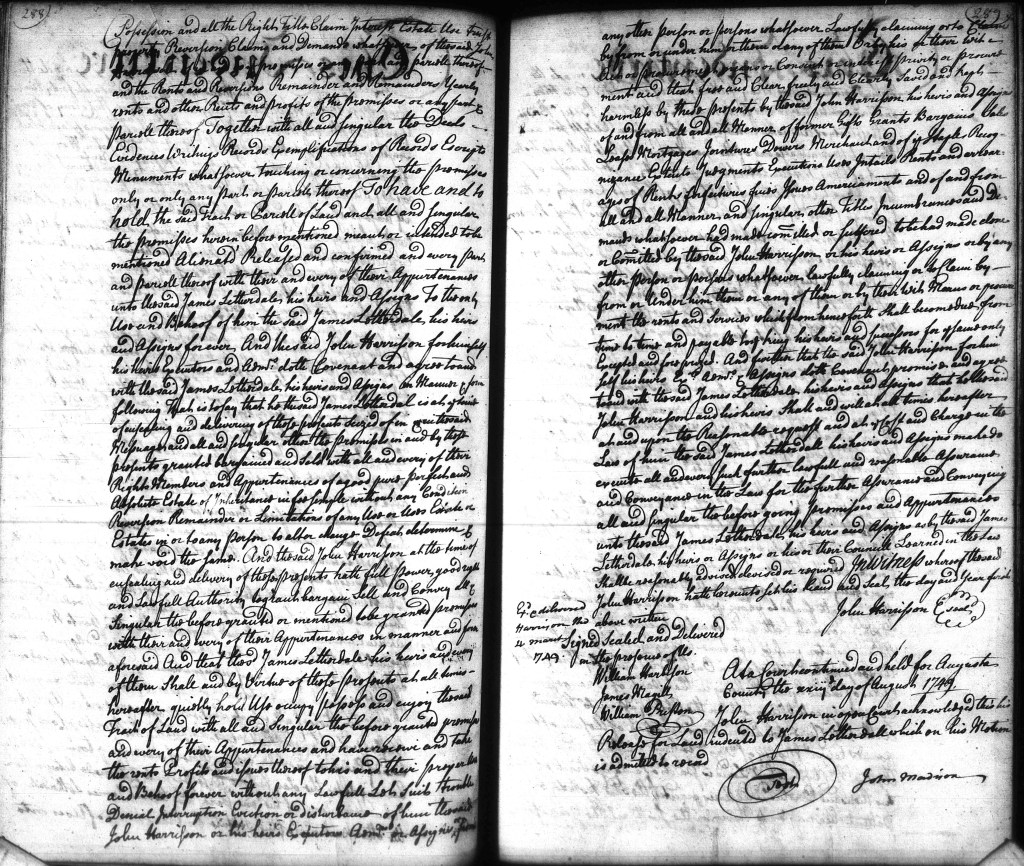 288
Possession and all the Right Title Claim Interest Estate Use Trust
property Reversion Claims and Demands whatsoever of the said John
premises or any part and parcell thereof
and the Rents and Reversions Remainder and Remainders Yearly
rents and other Rents and profits of the premises or any part &
parcell thereof Together with all and singular the Deeds
Evidences Writings Records Exemplifications of Records Escripts
Monuments whatsoever touching or concerning the premises
only or only any part or parcells thereof To have and to
hold the said Tract or Parcell of Land and all and singular
the premisses herein before mentioned meant or intended to be
mentioned Aliened Released and confirmed and every part
and parcell thereof with their and every of their Appurtenances
unto the said James Lotherdale his heirs and Assigns To the only
Use and Behoof of him the said James Lotherdale his heirs
and Assigns for ever And the said John Harrisson for himself
his heirs Executors and Admrs. doth Covenant and agree to and
with the said James Lotherdale his heirs and Assigns in Manner & form
following That is to say that he the said James Lotherdale is at ye time
of ensealing and delivering of these presents Seized of in the said
Messuage and all and singular other the Premisses in and by these
presents granted bargained and Sold with all and every of their
Rights Members and Appurtenances of a good pure perfect and
Absolute Estate of Inheritance in fee simple without any Condition
Reversion Remainder or Limitations of any Use or Uses Estate or
Estates in or to any person to alter change Defeat determine &
make void the same. And the said John Harrisson at the time of
ensealing and delivery of these presents hath full power good right
and Lawfull Authority to grant bargain Sell and Convey all &
Singular the before granted or mentioned to be granted premisses
with their and every of their Appurtenances in manner and form
aforesaid And that the sd James Lotherdale his heirs and every
of them Shall and by Virtue of these presents at all times
hereafter quietly hold Use occupy possess and enjoy the said
Tract of Land with all and Singular the before granted premisses
and every of their Appurtenances and have receive and take
the rents Profits and issues thereof to his and their proper Use
and Behoof forever without any Lawfull Lett Suit trouble
Denial Interruption Eviction or disturbance of him the said
John Harrisson or his heirs Executors Admrs. or Assigns or from
289
any other person or persons whatsoever Lawfully claiming or to Claim
by from or under him or them or any of them Or by his or their
means or Consent or
ment and that free and Clear freely and Clearly Saved and kept
harmless by these presents by the said John Harrisson his heirs and Assigns
of and from all and all Manner of former Gifts Grants Bargains Sale
Leases Mortgages Jointures Dowers Merchant and of ye Staple Recog-
nizance Extents Judgments Executions Uses Intails Rents and arrear
ages of Rents forfeitures fines Issues Amerciaments and of and from
all and all Manner and singular other Titles Incumbrances and De-
mands whatsoever had made comitted or suffered to be had made done
or Comitted by the said John Harrisson or his heirs or Assigns or by any
other person or persons whatsoever lawfully claiming or to Claim by
from or Under him them or any of them or by their with Means or procure
ment the rents and Services which from henceforth Shall become due from
time to time and payable to of King his heirs and Successors for quit rent only
Excepted and foreprized. And further that the said John Harrisson for him
self his heirs Exrs. Admrs. & Assigns doth Covenant promise and agree
to and with the said James Lotherdale his heirs and Assigns that he the said
John Harrisson and his heirs Shall and will at all times hereafter
at and upon the Reasonable request and at ye Cost and Charge in the
Law of him the said James Lotherdall his heirs and Assigns make do
execute all and every such further lawfull and reasonable Assurance
and Conveyance in the Law for the further Assurance and Conveying
all and singular the before going premisses and Appurtenances
unto the said James Lotherdale his heirs and Assigns as by the said James
Lotherdale his heirs or Assigns or his or their Councill Learned in the Law
Shall be reasonably advised devised or required In Witness whereof the said
John Harrisson hath hereunto set his Hand and Seal the day and Year first
above written
John Harrisson Seal
Ex. & delivered
Harrison the
4 march
1749
Signed Sealed and Delivered
in the presence of Us.
William Harrisson
James Magill
William Preston
At a Court continued and held for Augusta
County the day of August 1749
John Harrisson in open Court acknowledged this his
Release for Land indented to James Lotherdall which on his Motion
is admitted to record
Test
John Madison